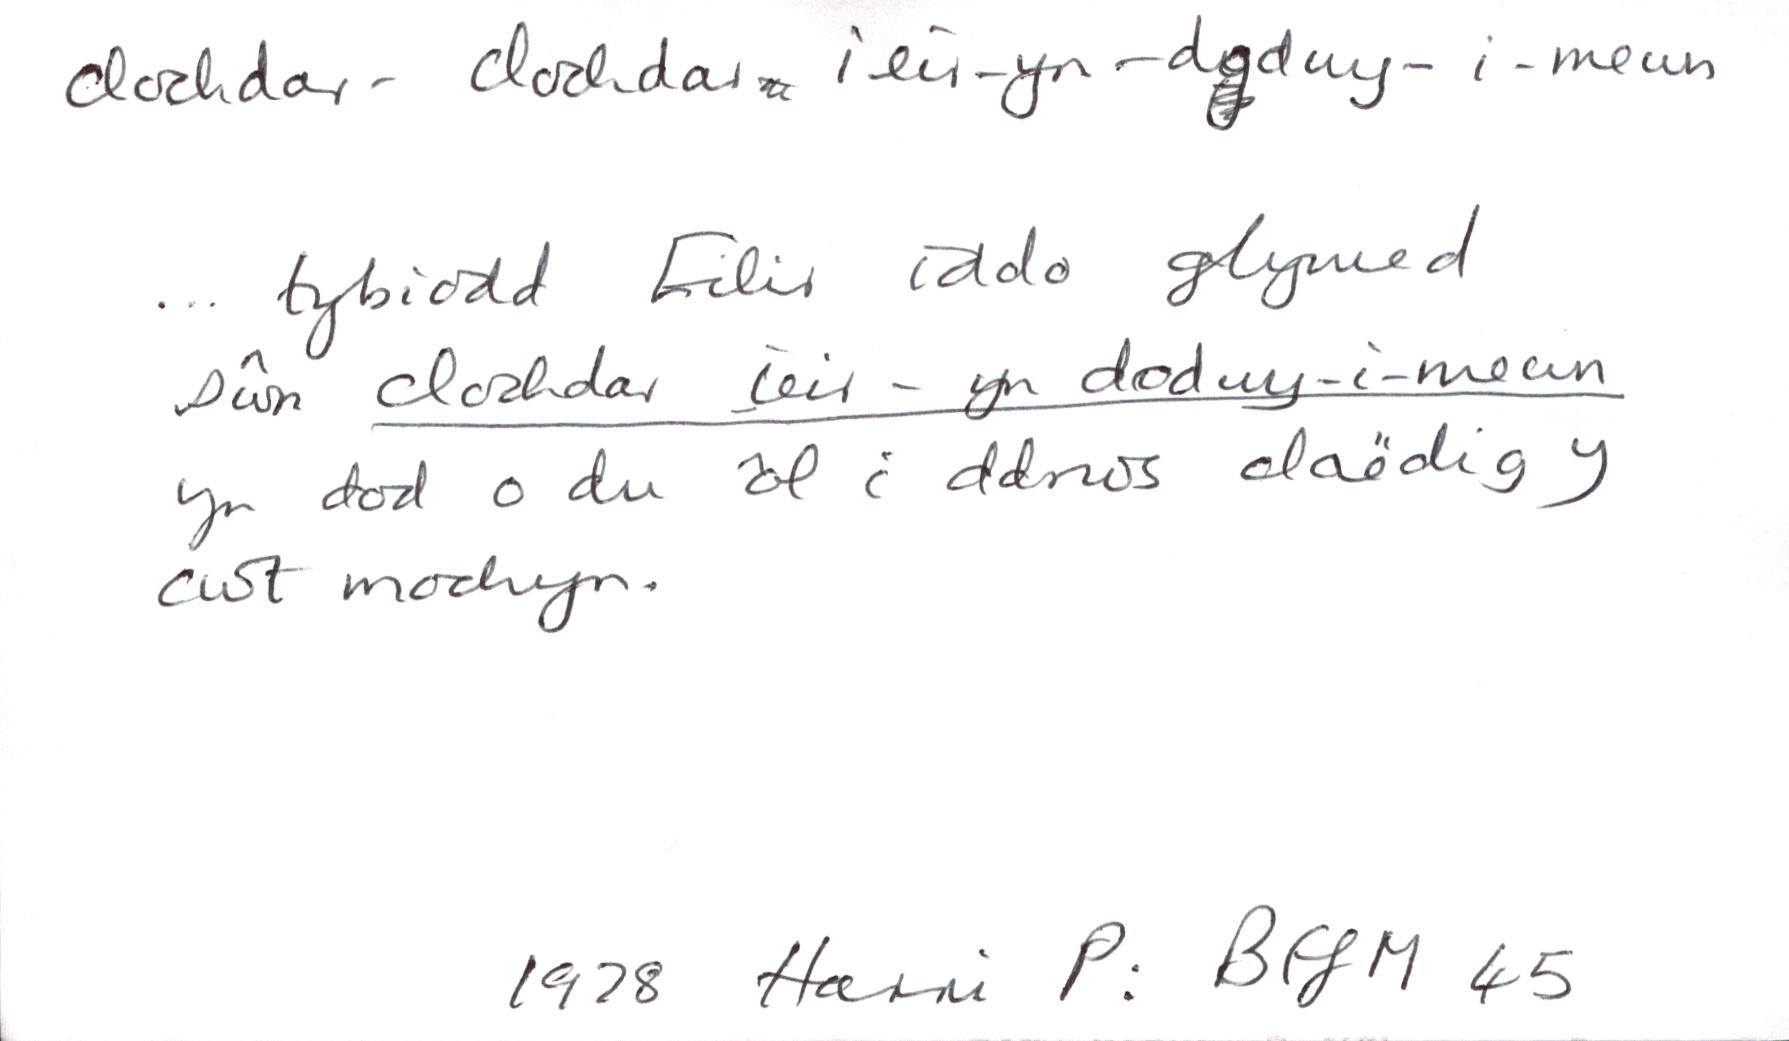 clochdar- clochdar- ieir-yn-dodwy-i-mewn
... tybiodd Eilir iddo glywed
sŵn clochdar ieir - yn dodwy-i-mewn
yn dod o du ôl i ddrws claëdig y
cwt mochyn.
1978 Harri P: BGM 45